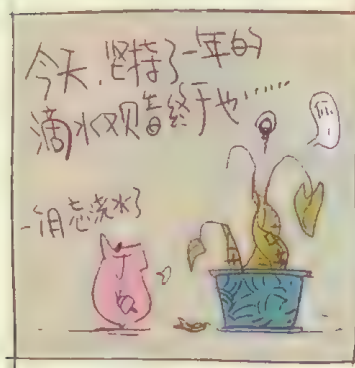 今天，坚持了一年的
滴水观音终于也……
一月忘浇水了